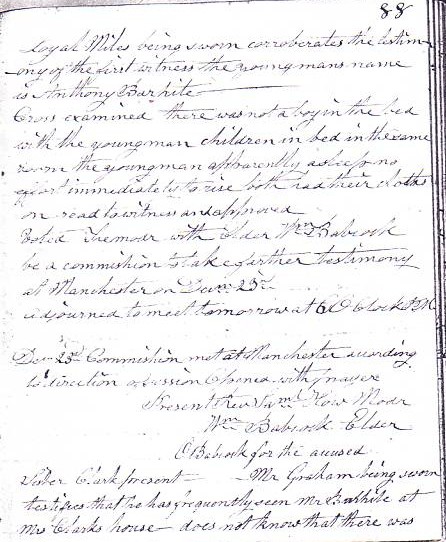 88
Loyal Miles being sworn corroberates the testim-
ony of the first witness the young mans name
is Anthony Barhite
Cross examined there was not a boy in the bed
with the young man children in bed in the same
room the young man apparently asleep no
effort immediately to rise both had their cloths
on read to witness and approved
Voted the modr with Elder Wm Babcock
be a commishion to take further testimony
at Manchester on Decm 23d
adjourned to meet tomorrow at 6 O Clock P.M.
Decm 23d Commishion met at Manchester according
to direction of session Opened with prayer
Present Rev Saml How Modr
Wm Babcock Elder
O Babcock for the accused
Sister Clark present — Mr Graham being sworn
testifies that he has frequently seen Mr Barhite at
Mrs Clarks house — does not know that there was